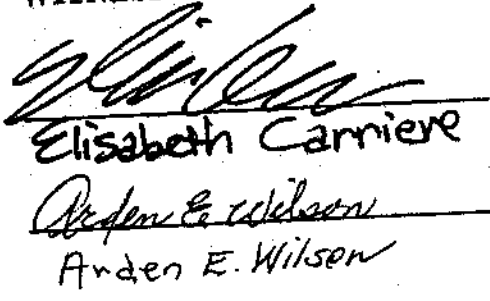 Elisabeth Carriere
Arden E. Wilson
Arden E. Wilson